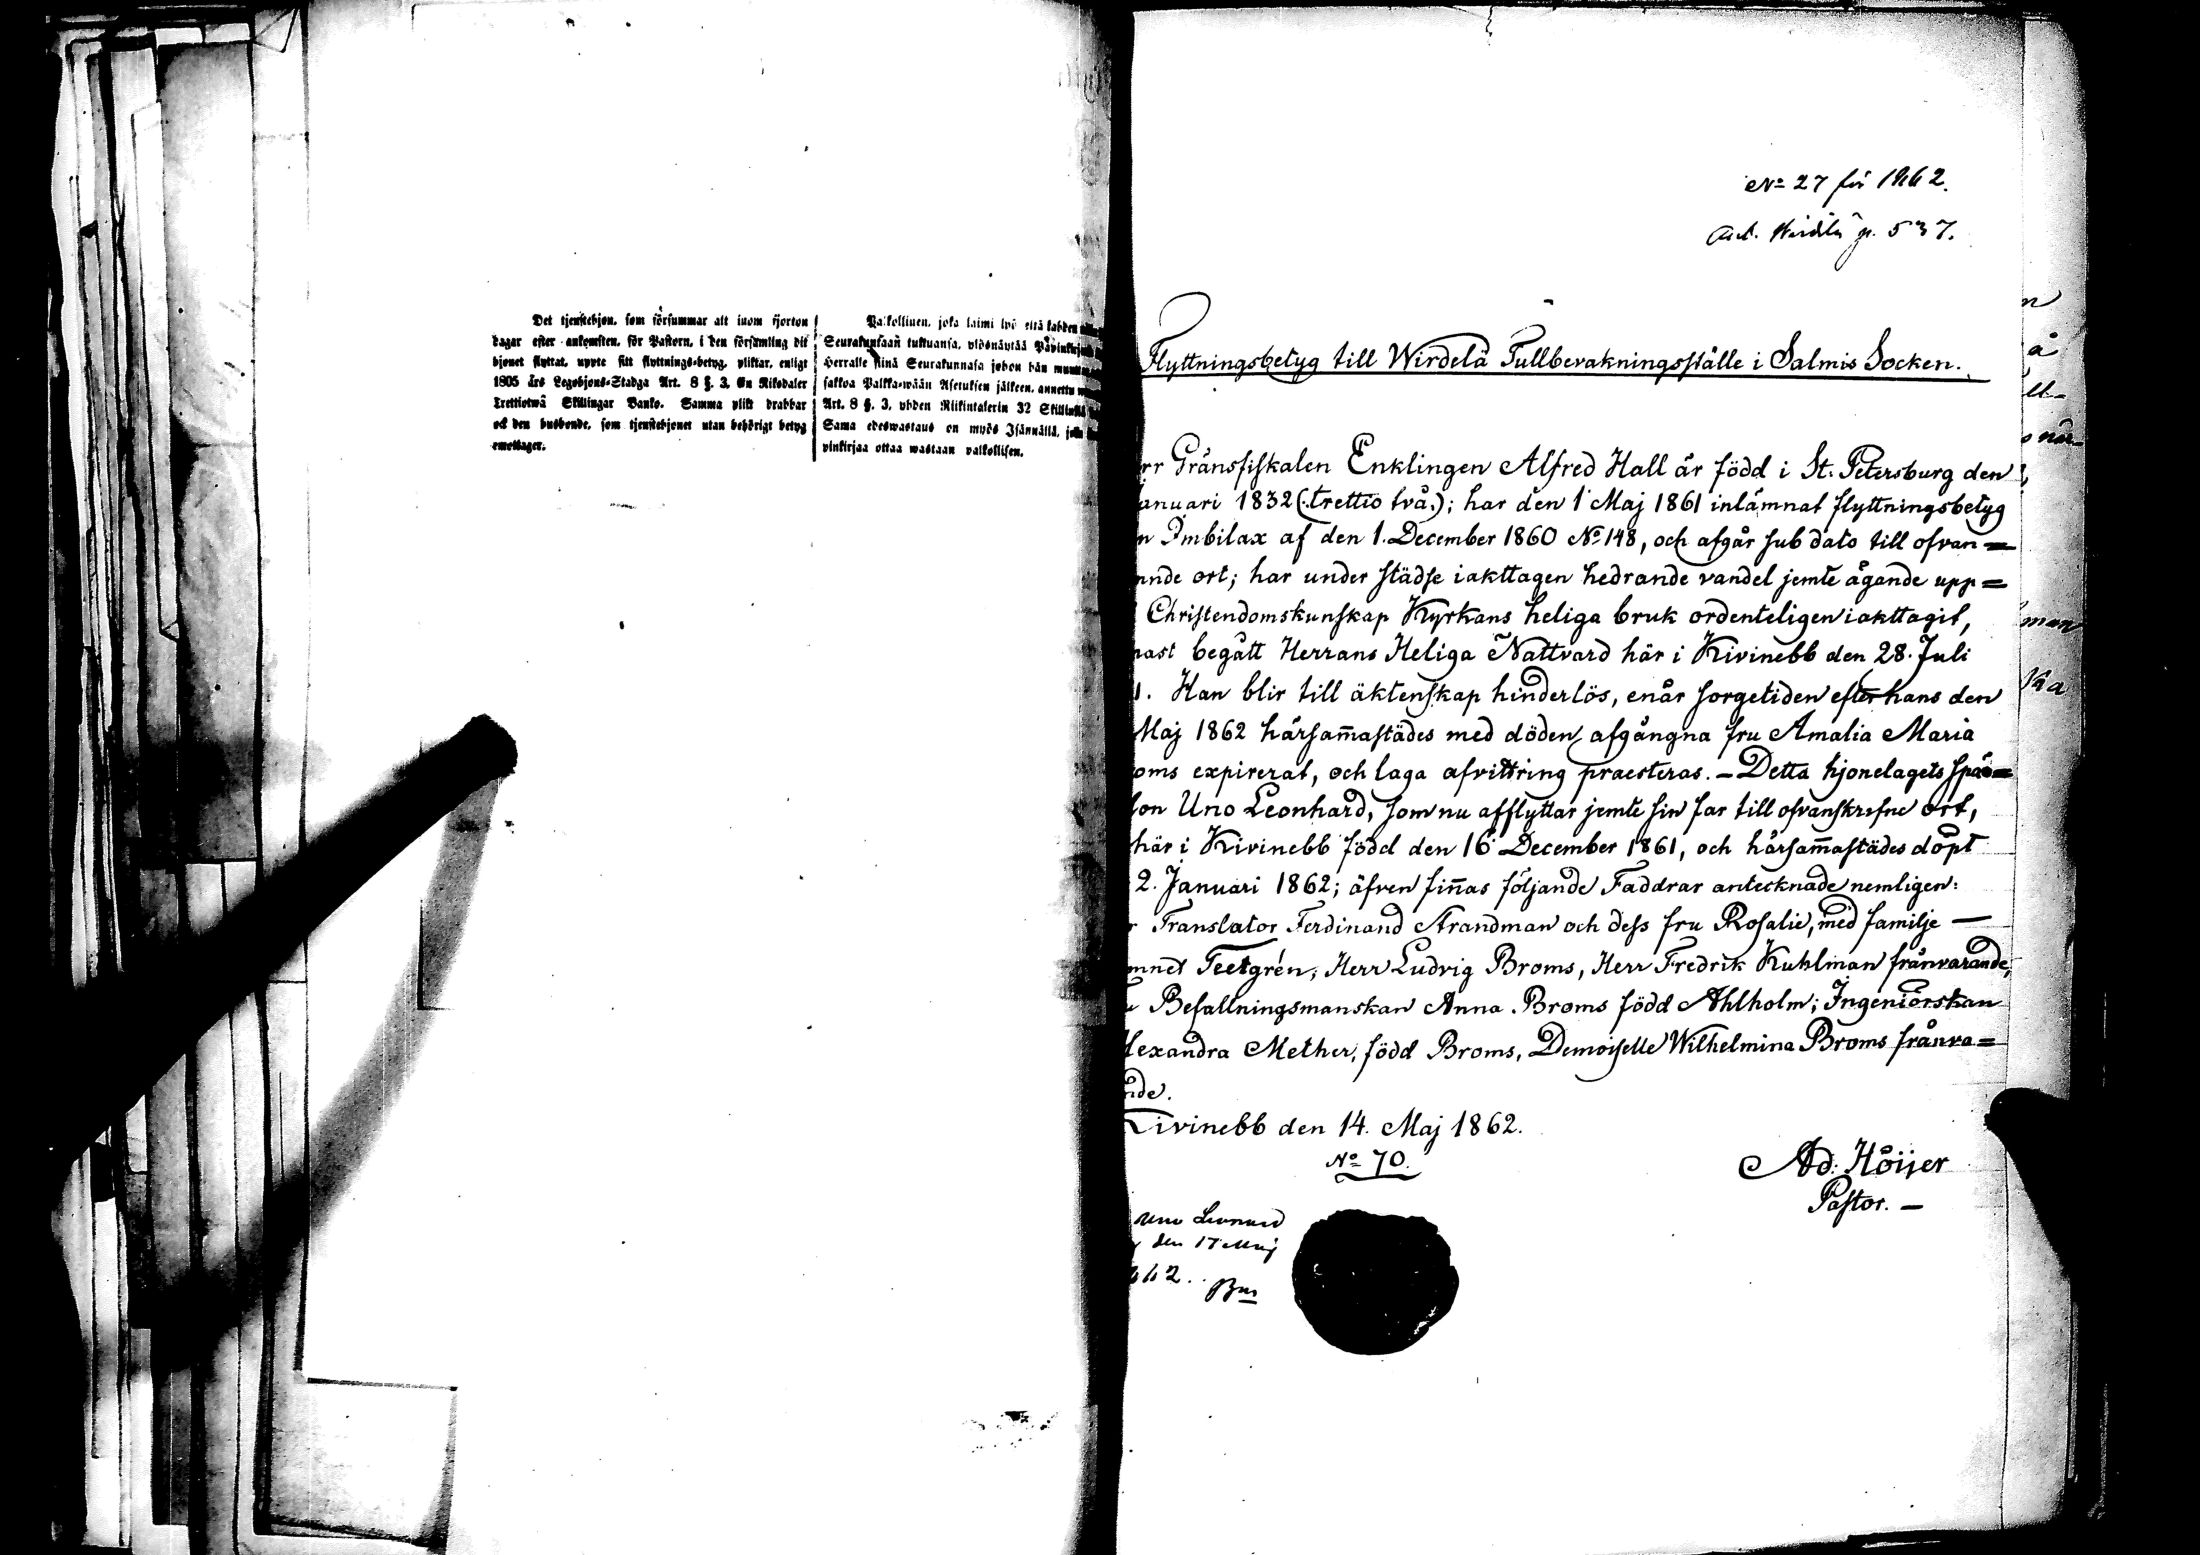 Det tjenstehjon, som försummar att inom fjorton
dagar efter ankomsten, för Pastorn, i den församling dit
hjonet flyttat, uppte sitt flyttnings-betyg, pliktar, enligt
1805 års Legohjons-Stadga Art. 8 §. 3. En Riksdaler
Trettiotwå Skillingar Banko. Samma plikt drabbar
ock den husbonde, som tjenstehjonet utan behörigt betyg
emottager.
Palkollinen, joka laimi lyö että kahden
Seurakuntaan tultuansa, ylösnäyttää
Herralle siinä Seurakunnasa johon hän
sakkoa Palkka-wään Asetuksen jälkeen, annettu
Art. 8 §. 3, yhden Riikintalerin 32
Sama edeswastaus on myös Isännällä,
pinkirjaa ottaa wastaan palkollisen.
No 27 för 1862.
Wirdilä p. 537.
Flyttningsbetyg till Wirdelä Tullbevakningsställe i Salmis Socken.
rr Gränsfiskalen Enklingen Alfred Hall är född i St. Petersburg den
anuari 1832 (:trettio två:); har den 1 Maj 1861 inlämnat flyttningsbetyg
n Imbilax af den 1. December 1860 No 148, och afgår sub dato till ofvan=
nde ort; har under städse iakttagen hedrande vandel jemte ägande upp=
Christendomskunskap Kyrkans heliga bruk ordenteligen iakttagit,
nast begått Herrans Heliga Nattvard här i Kivinebb den 28. Juli
1. Han blir till äktenskap hinderlös, enär sorgetiden efter hans den
Maj 1862 härsam̄astädes med döden afgångna fru Amalia Maria
oms expirerat, och laga afvittring praesteras. – Detta hjonelagets spä=
son Uno Leonhard, som nu afflyttar jemte sin far till ofvanskrefne ort,
här i Kivinebb född den 16 December 1861, och härsam̄astädes döpt
2. Januari 1862; äfven fin̄as följande Faddrar antecknade nemligen:
r Translator Ferdinand Strandman och dess fru Rosalie, med familje —
mnet Teetgrén; Herr Ludvig Broms, Herr Fredrik Kuhlman frånvarande,
Befallningsmanskan Anna Broms född Ahlholm; Ingeniörskan
lexandra Mether, född Broms, Demoiselle Wilhelmina Broms frånva=
nde.
Kivinebb den 14. Maj 1862.
No 70.
Ad. Höijer
Pastor. –
Uno Leonard
den 17 Maj
862.